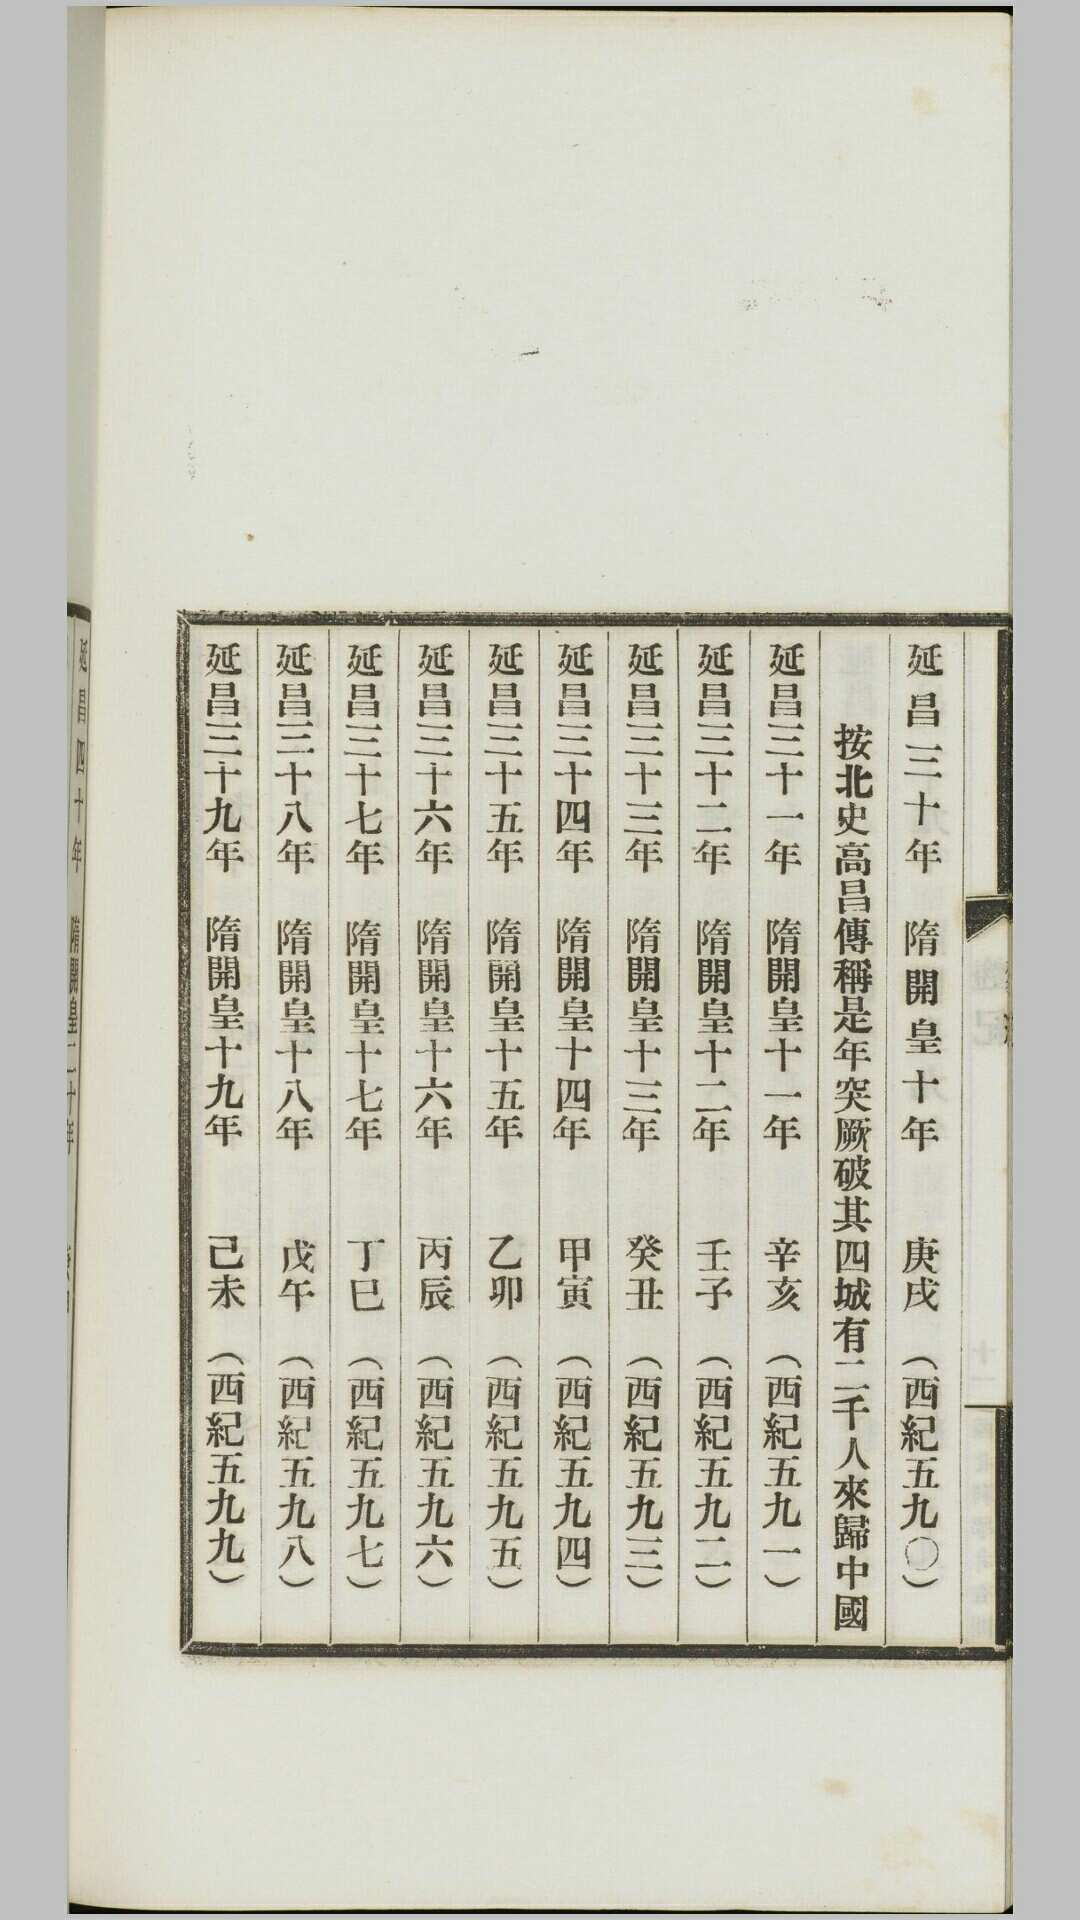 延昌三十年 隋開皇十年 庚戌 (西紀五九〇)
按北史高昌傳稱是年突厥破其四城有二千人來歸中國
延昌三十一年 隋開皇十一年 辛亥 (西紀五九一)
延昌三十二年 隋開皇十二年 壬子 (西紀五九二)
延昌三十三年 隋開皇十三年 癸丑 (西紀五九三)
延昌三十四年 隋開皇十四年 甲寅 (西紀五九四)
延昌三十五年 隋開皇十五年 乙卯 (西紀五九五)
延昌三十六年 隋開皇十六年 丙辰 (西紀五九六)
延昌三十七年 隋開皇十七年 丁巳 (西紀五九七)
延昌三十八年 隋開皇十八年 戊午 (西紀五九八)
延昌三十九年 隋開皇十九年 己未 (西紀五九九)
延昌四十年 隋開皇二十年